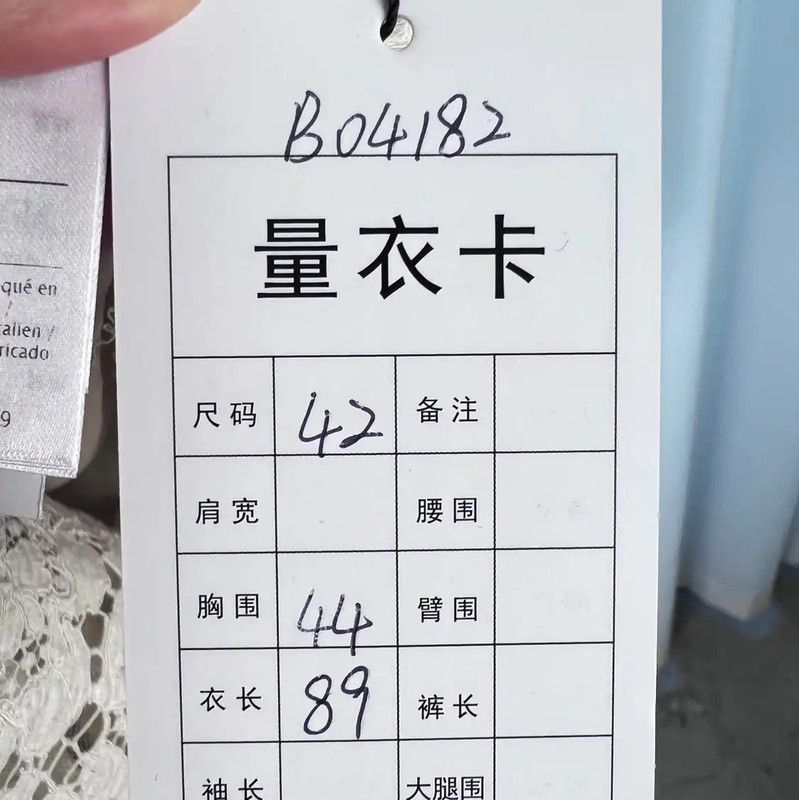 B04182
量衣卡
尺码 42 备注
肩宽 腰围
胸围 44 臂围
衣长 89 裤长
袖长 大腿围
qué en
/
talien /
ricado
9